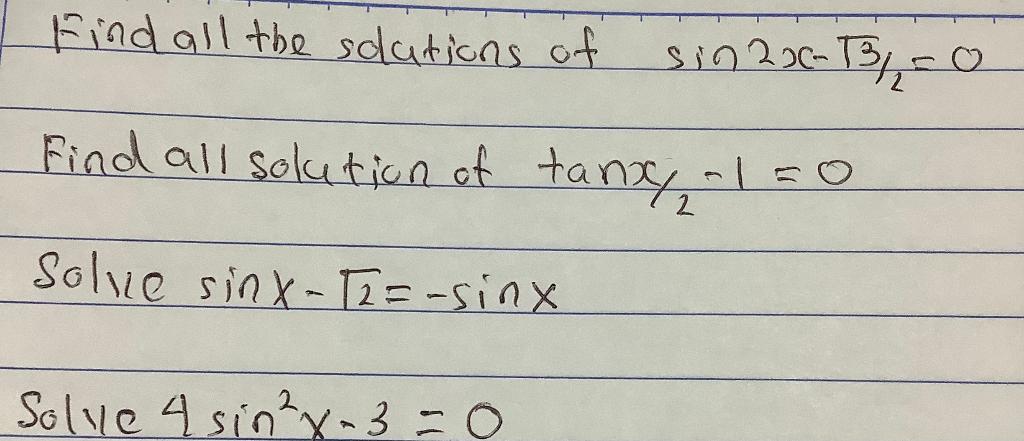 Find all the solutions of sin2x-√3/2=0
Find all solution of tanx/2-1=0
Solve sinx-√2=-sinx
Solve 4sin²x-3=0